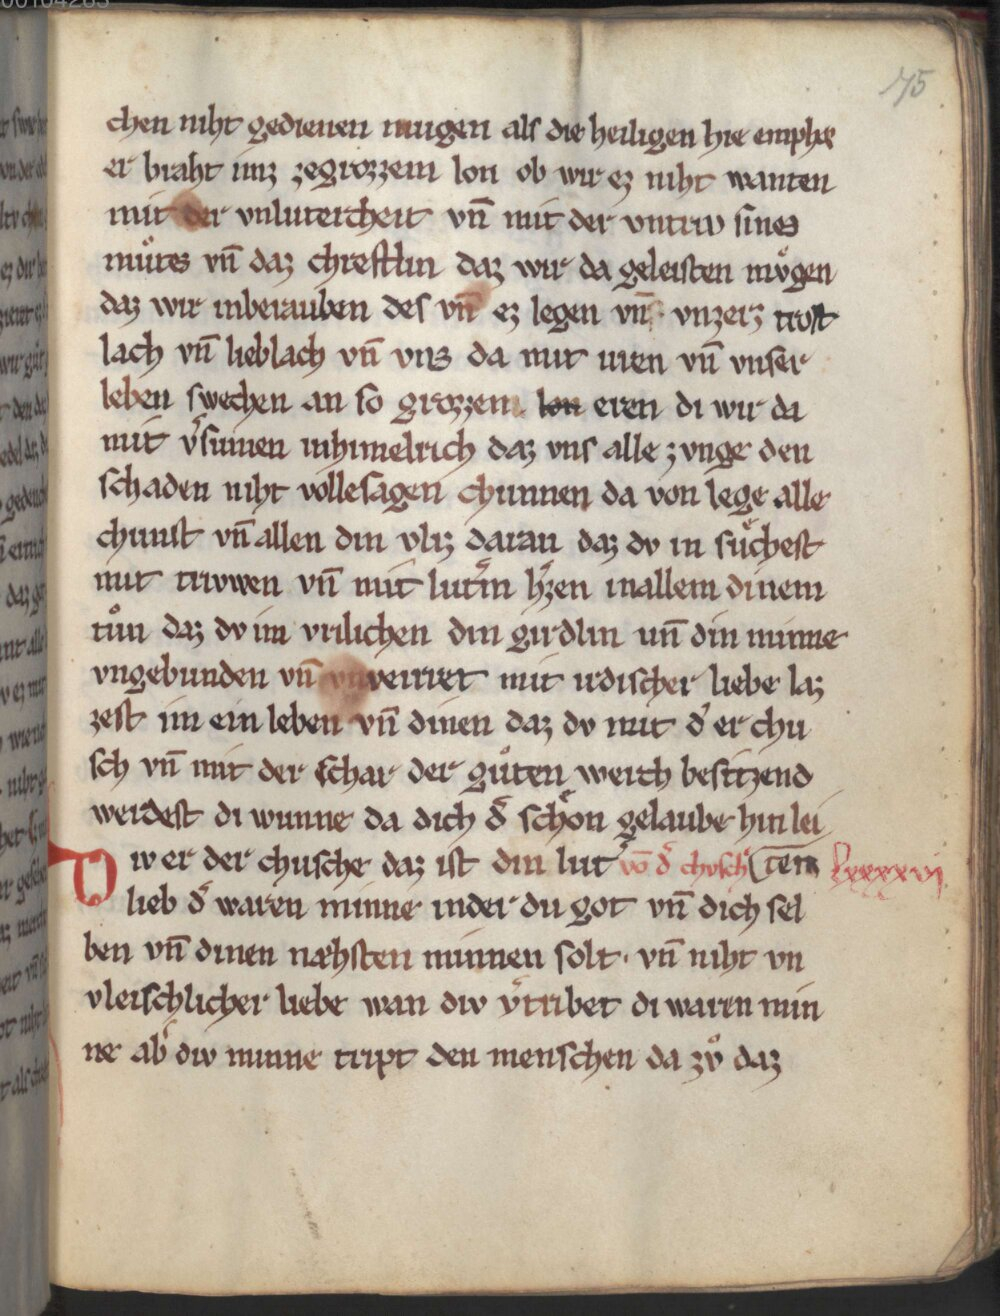 75
chen niht gedienen mugen als die heiligen hie emphie
er braht imz zegrozzem lon ob wir ez niht wanten
mit der vnlutercheit vn̄ mit der vntriv sines
můtes vn̄ daz chreftlin daz wir da geleisten mv̊gen
daz wir in berauben des vn̄ ez legen vn̄ vnzerz trost
lach vn̄ lieblach vn̄ vns da mit vren vn̄ vnser
leben swechen an so grozzem lon eren di wir da
mit v̾sumen inhimelrich daz vns alle zvnge den
schaden niht vollesagen chunnen da von lege alle
chunst vn̄ allen din vliz daran daz dv in sůchest
mit triwen vn̄ mit lut̾m h̾zen inallem dinem
tůn daz dv im vrilichen din girdlin un̄ din minne
vngebunden vn̄ vnverirret mit irdischer liebe laz
zest im ein leben vn̄ dinen daz dv mit d̾ er chu
sch vn̄ mit der schar der gůten werch besitzend
werdest di wunne da dich d̾ schön gelaube hin lei
Diw er der chusche daz ist din lut̾ vō d̾ chvsch̾ (tem lxxxxvi
lieb d̾ waren minne inder du got vn̄ dich sel
ben vn̄ dinen næhsten minnen solt. vn̄ niht vn
vleischlicher liebe wan div v̾tribet di waren min
ne ab̾ div minne tript den menschen da zv̊ daz